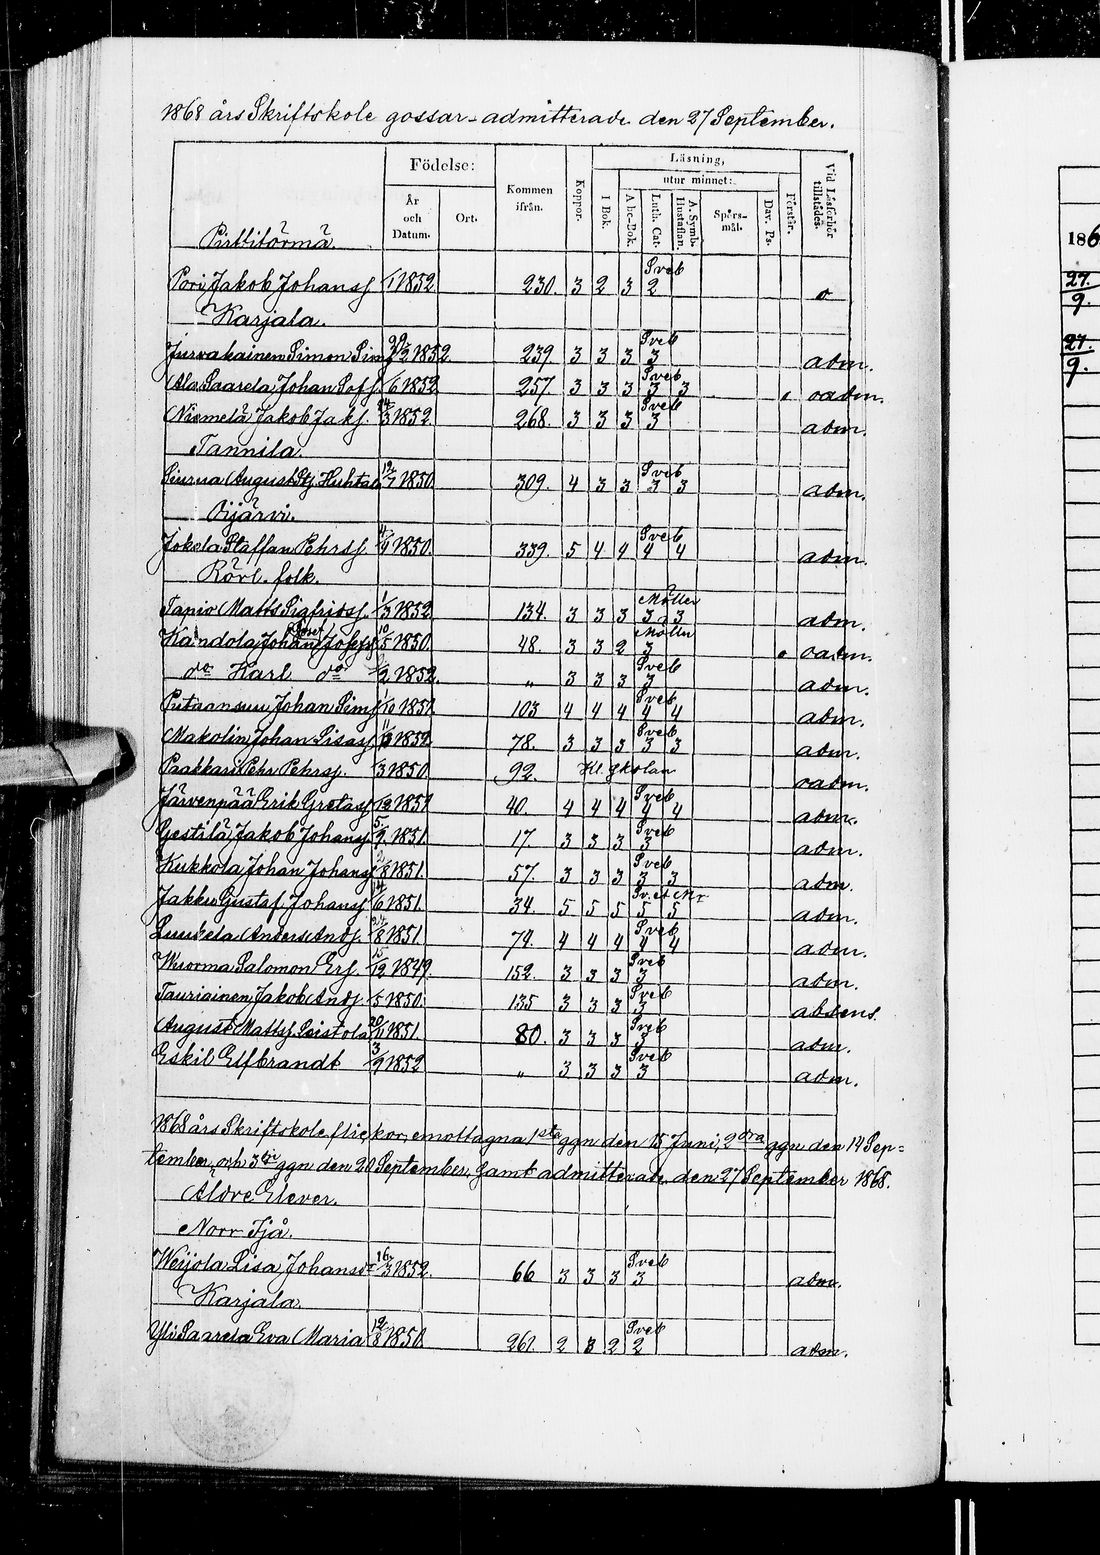 1868 års Skriftskole gossar - admitterade den 27 September.
Födelse: Kommen ifrån. Koppor. Läsning, Vid Läsförhör tillstädes.
utur minnet:
År och Datum. Ort. I Bok. Abc-Bok. Luth. Cat. A. Symb. Hustaflan. Spörsmål. Dav. Ps. Förstår.
Pirttitörmä.
Sveb
Pori Jakob Johanss 1852 230. 3 2 3 2 o
Karjala.
Sveb
Jurvakainen Simon Sim 1852 239 3 3 3 3 adm.
Sveb
Ala Saarela Johan Sofs. 1852 257. 3 3 3 3 3 oadm.
Sveb
Niemelä Jakob Jaks. 1852 268. 3 3 3 3 adm.
Tannila.
Sveb
August Stj. Huhtala 12/7 1850 309. 4 3 3 3 3 adm.
Oijärvi.
Sveb
Jokela Staffan Pehrss 1850. 339. 5 4 4 4 4 adm.
Rörl. folk.
Möller
Tapio Matts Sigfridss. 1/3 1852 134. 3 3 3 3 3 adm.
Möller
Kandola Johan Josefss 10/5 1850. 48. 3 3 2 3 oadm.
Sveb
do Karl do 1852. „ 3 3 3 3 adm.
Sveb
Putaansuu Johan Sims 1/10 1851 103 4 4 4 4 4 adm.
Sveb
Makolin Johan Lisas 1852 78. 3 3 3 3 3 adm.
Paakkari Pehr Pehrss. /3 1850 92. Kl. skolan oadm.
Sveb
Järvenpää Erik Gretass /12 1851 40. 4 4 4 4 4 adm.
Sveb
Gestilä Jakob Johanss 5/9 1851. 17. 3 3 3 3 adm.
Sveb
Kukkola Johan Johanss 2/8 1851. 57. 3 3 3 3 3 adm.
Sv. et Mr
Jakku Gustaf Johanss 14/6 1851. 34. 5 5 5 5 5 adm.
Sveb
Luukela Anders Ands. 24/8 1851 74. 4 4 4 4 4 adm.
Sveb
Wuorma Salomon Ers. 15/12 1849 152. 3 3 3 3 adm.
Sveb
Tauriainen Jakob Ands. /5 1850. 135 3 3 3 3 absens.
Sveb
August Mattss Leistola 1851 80. 3 3 3 3 adm.
Sveb
Eskil Elfbrandt 3/9 1852 „ 3 3 3 3 adm.
1868 års Skriftskole flickor, emottagna 1sta ggn den 15 Juni, 2dra ggn den 14 Sep-
tember, och 3dje ggn den 20 September, samt admitterade den 27 September 1868.
Äldre Elever.
Norr Ijå.
Sveb
Weijola Lisa Johansdr 16/3 1852. 66 3 3 3 3 adm.
Karjala.
Sveb
Yli Saarela Eva Maria 12/8 1850. 261. 2 3 2 2 adm.
186
27./9.
27./9.